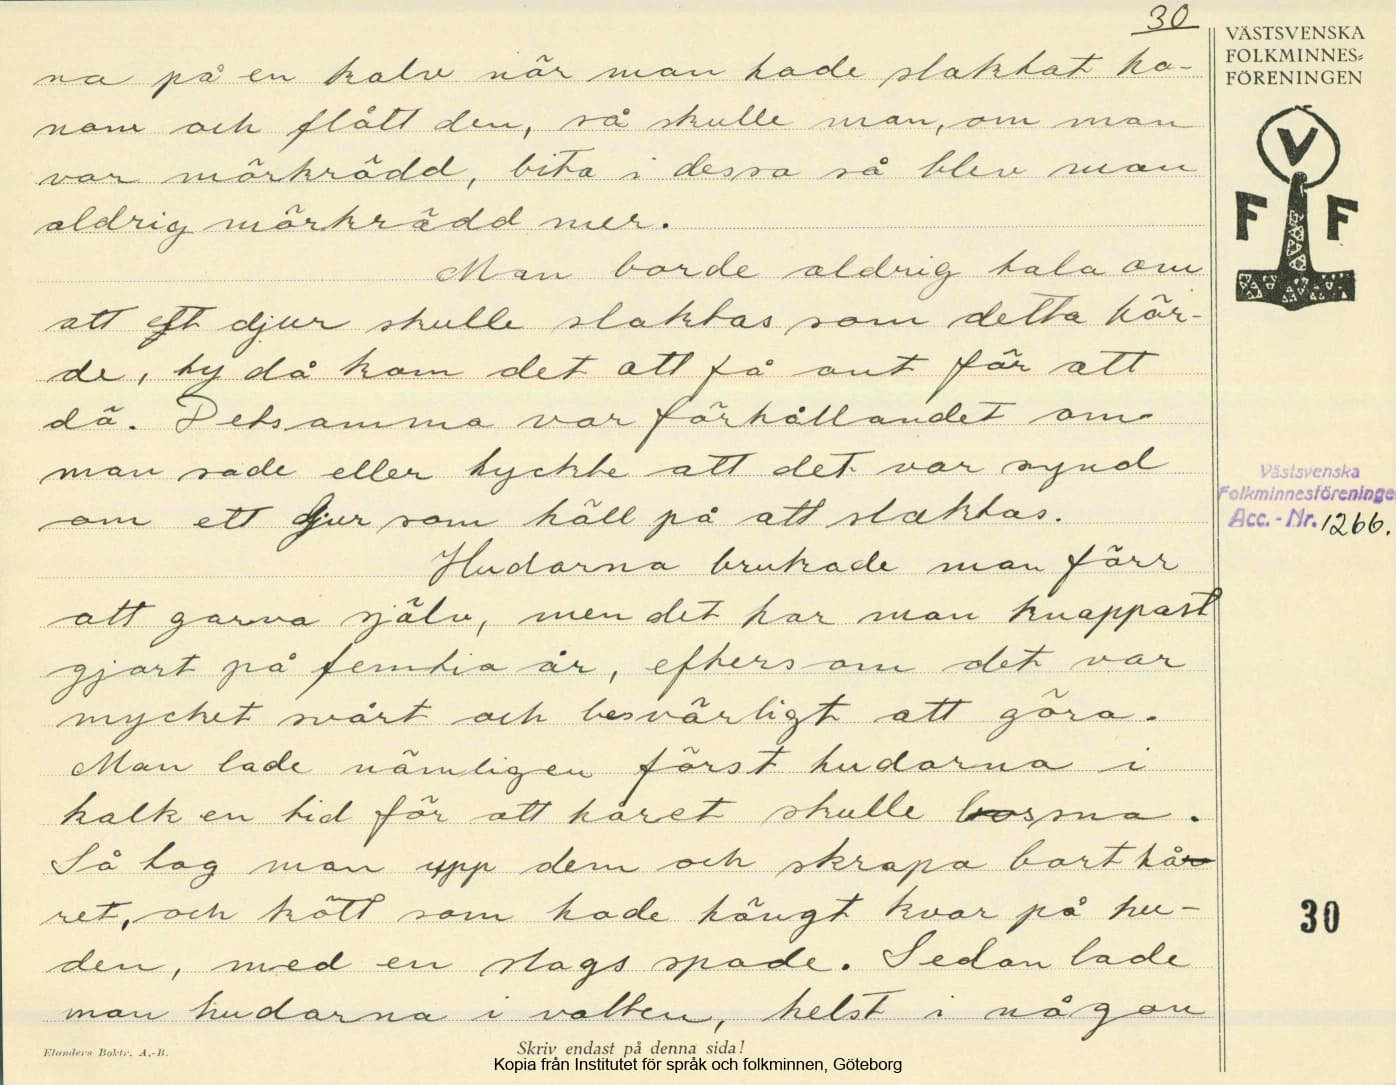 30
VÄSTSVENSKA
FOLKMINNES=
FÖRENINGEN
na på en kalv när man hade slaktat ho-
nom och flått den, så skulle man, om man
var mörkrädd, bita i dessa så blev man
aldrig mörkrädd mer.
Man borde aldrig tala om
att ett djur skulle slaktas som detta hör-
de, ty då kom det att få ont för att
dö. Detsamma var förhållandet om
man sade eller tyckte att det var synd
om ett djur som höll på att slaktas.
Hudarna brukade man förr
att garva själv, men det har man knappast
gjort på femtio år, eftersom det var
mycket svårt och besvärligt att göra.
Man lade nämligen först hudarna i
kalk en tid för att håret skulle lossna.
Så tog man upp dem och skrapa bort hå-
ret, och kött som hade hängt kvar på hu-
den, med en slags spade. Sedan lade
man hudarna i vatten, helst i någon
V
F F
Västsvenska
Folkminnesföreninge
Acc. - Nr. 1266.
30
Elanders Boktr. A.-B.
Skriv endast på denna sida!
Kopia från Institutet för språk och folkminnen, Göteborg